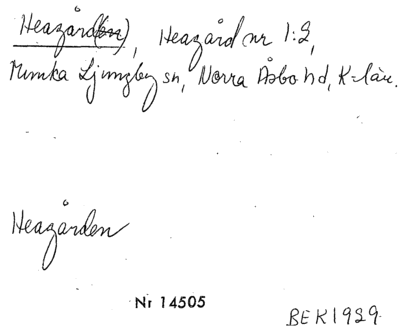 Heagård(en), Heagård nr 1:2,
Munka Ljungby sn, Norra Åsbo hd, K-län.
Heagården
Nr 14505
BEK1929